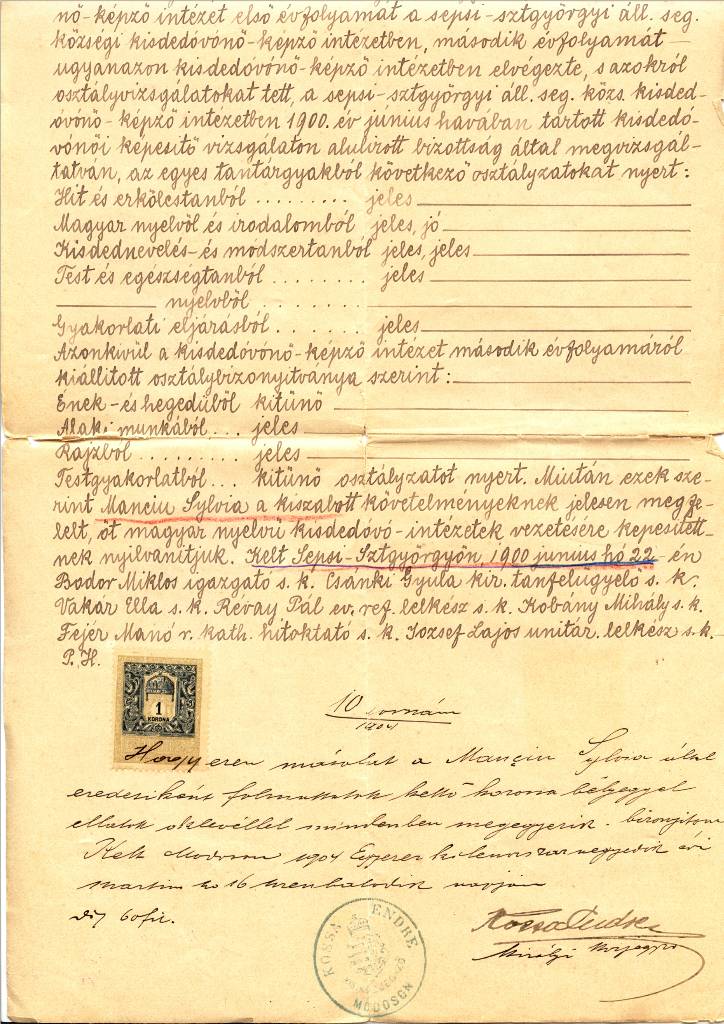 nő-képző intézet első évfolyamát a sepsi-sztgyörgyi áll. seg.
községi kisdedóvónő-képző intézetben, második évfolyamát
ugyanazon kisdedóvónő-képző intézetben elvégezte, s azokról
osztályvizsgálatokat tett, a sepsi-sztgyörgyi áll. seg. közs. kisded-
óvónő-képző intézetben 1900. év június havában tartott kisdedó-
vónői képesítő vizsgálaton alulírott bizottság által megvizsgál-
tatván, az egyes tantárgyakból következő osztályzatokat nyert:
Hit és erkölcstanból ......... jeles
Magyar nyelvől és irodalomból jeles, jó
Kisdednevelés- és módszertanból jeles, jeles
Test és egészségtanból ........ jeles
nyelvből .......
Gyakorlati eljárásból ....... jeles
Azonkívül a kisdedóvónő-képző intézet második évfolyamáról
kiállított osztálybizonyítványa szerint:
Ének- és hegedűből kitünő
Alaki munkából ... jeles
Rajzból ......... jeles
Testgyakorlatból ... kitünő osztályzatot nyert. Miután ezek sze-
rint Manciu Sylvia a kiszabott követelményeknek jelesen megfe-
lelt, őt magyar nyelvű kisdedóvó-intézetek vezetésére képesített-
nek nyilvánítjuk. Kelt Sepsi-Sztgyörgyön, 1900 június hó 22-én
Bodor Miklós igazgató s.k. Csánki Gyula kir. tanfelügyelő s.k.
Vákár Ella s.k. Révay Pál ev. ref. lelkész s.k. Kobány Mihály s.k.
Fejér Manó r. kath. hitoktató s.k. József Lajos unitár. lelkész s.k.
P. H.
1
KORONA
10
1904
Hogy ezen másolat a Manciu Sylvia által
eredetiként felmutatott kettő korona bélyeggel
ellátott oklevéllel mindenben megegyezik - bizonyítom
Kelt Modoson 1904 Egyezer kilencszáznegyedik évi
martius hó 16 tizenhatodik napján
Díj 60 fil.
KOSSA ENDRE
MODOSON
Kossa Endre
Királyi közjegyző